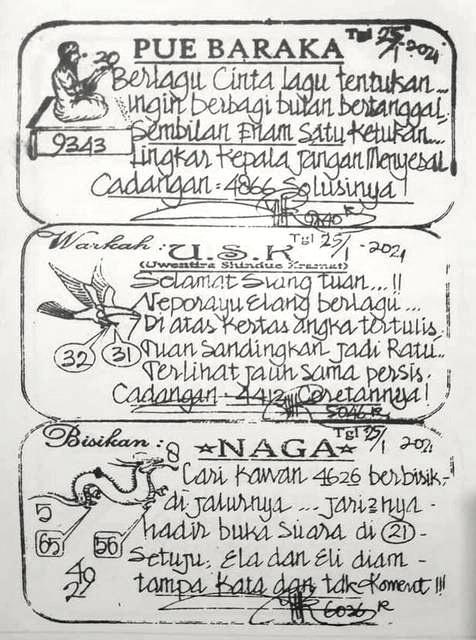 PUE BARAKA Tgl 25/1-2021
20
Berlagu Cinta lagu tentukan...
ingin berbagi bulan bertanggal.
Sembilan Enam Satu Ketukan....
9343
Lingkar Kepala jangan Menyesal
Cadangan: 4866 Solusinya!
9240 R
Warkah: U.S.K Tgl 25/1-2021
(Uwentira Shinduc Kramat)
Selamat Siang tuan...!!
Veporayu Elang berlagu...
Di atas Kertas angka tertulis.
32 31
Tuan Sandingkan jadi Ratu..
Terlihat jauh sama persis.
Cadangan - 4412 Coretannya!
5046 R
Bisikan: ★NAGA★ Tgl 25/1 2021
8
Cari Kawan 4626 berbisik-
di jalurnya ... jari2nya-
5
hadir buka Suara di 21 -
65 56
Setuju, Ela dan Eli diam -
49
27
tampa Kata dan tdk Koment !!!
6036 R